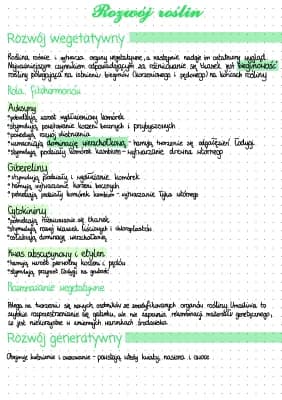 Rozwój roślin
Rozwój wegetatywny
Roślina rośnie i wytwarza organy wegetatywne, a następnie nadaje im ostateczny wygląd.
Najważniejszym czynnikiem odpowiadającym za różnicowanie się tkanek jest biegunowość
rośliny polegająca na istnieniu biegunów (korzeniowego i pędowego) na końcach rośliny
Rola fitohormonów
Auksyny
*pobudzają wzrost wydłużeniowy komórek
*stymulują powstawanie korzeni bocznych i przybyszowych
*powodują rozwój
*wzmacniają dominację wierzchołkową - hamują tworzenie się odgałęzień łodygi
*stymulują podziały komórek kambium - wytwarzanie drewna wtórnego
Gibereliny
*stymulują podziały i wydłużanie komórek
*hamują wytwarzanie korzeni bocznych
*pobudzają podziały komórek kambium - wytwarzanie łyka wtórnego
Cytokininy
*pobudzają różnicowanie się tkanek
*stymulują rozwój blaszek liściowych i chloroplastów
*osłabiają dominację wierzchołkową
Kwas abscysynowy i etylen
*hamują wzrost pierwotny korzeni i pędów
*stymulują przyrost łodygi na grubość
Rozmnażanie wegetatywne
Polega na tworzeniu się nowych osobników ze zmodyfikowanych organów rośliny. Umożliwia to
szybkie rozprzestrzenianie się gatunku, ale nie zapewnia rekombinacji materiału genetycznego,
co jest niekorzystne w zmiennych warunkach środowiska.
Rozwój generatywny
Obejmuje kwitnienie i owocowanie - powstają wtedy kwiaty, nasiona i owoce